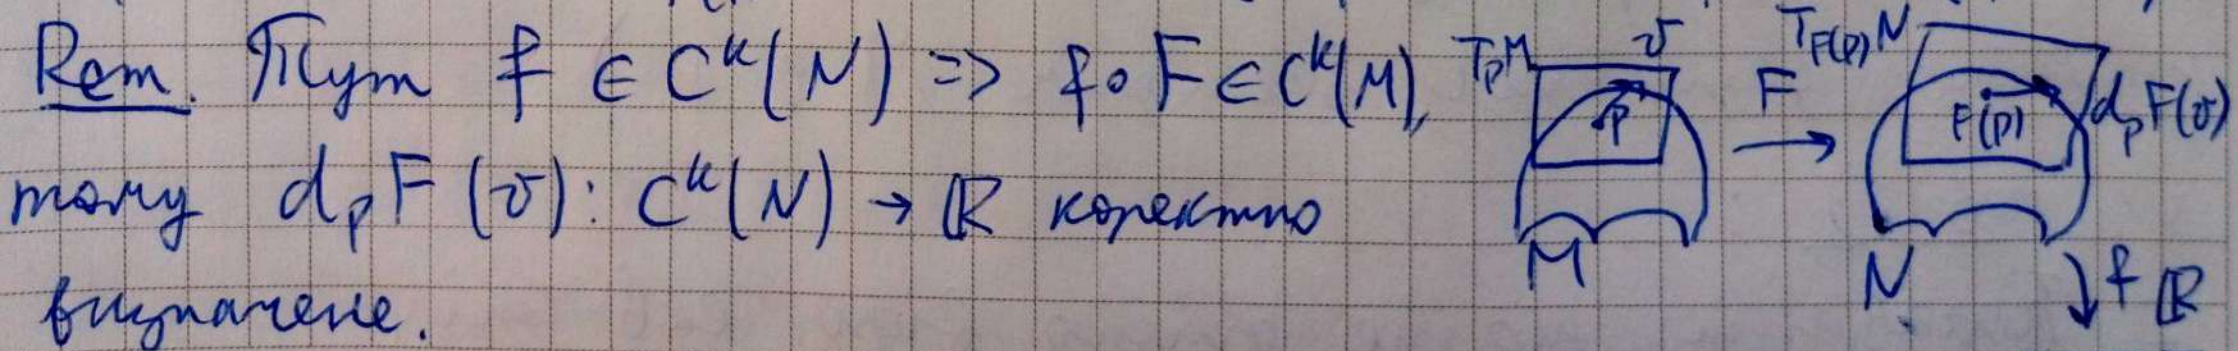 Rem. Тут f ∈ C^k(N) => f∘F ∈ C^k(M),
тому d_pF(v): C^k(N) → ℝ коректно
визначене.
T_pM v T_{F(p)}N
p F F(p) d_pF(v)
M N f ℝ